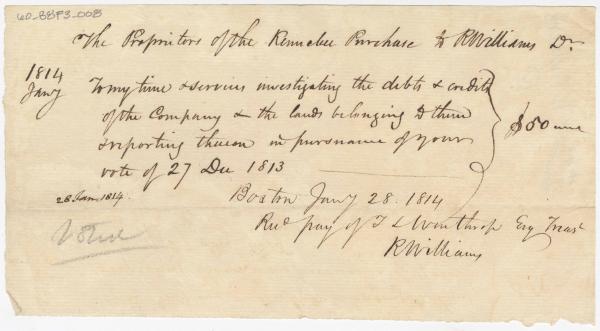 60-88F3-008
The Propritors of the Kennebec Purchase to RWilliams Dr
1814
Jany
To my time & services investigating the debts & credits
of the Company & the lands belonging to them
& reporting thereon in pursuance of your
vote of 27 Dec 1813
$50
28 Jan. 1814.
Boston Jany 28. 1814
Recd pay of T L Winthrop Esq Treasr
RWilliams